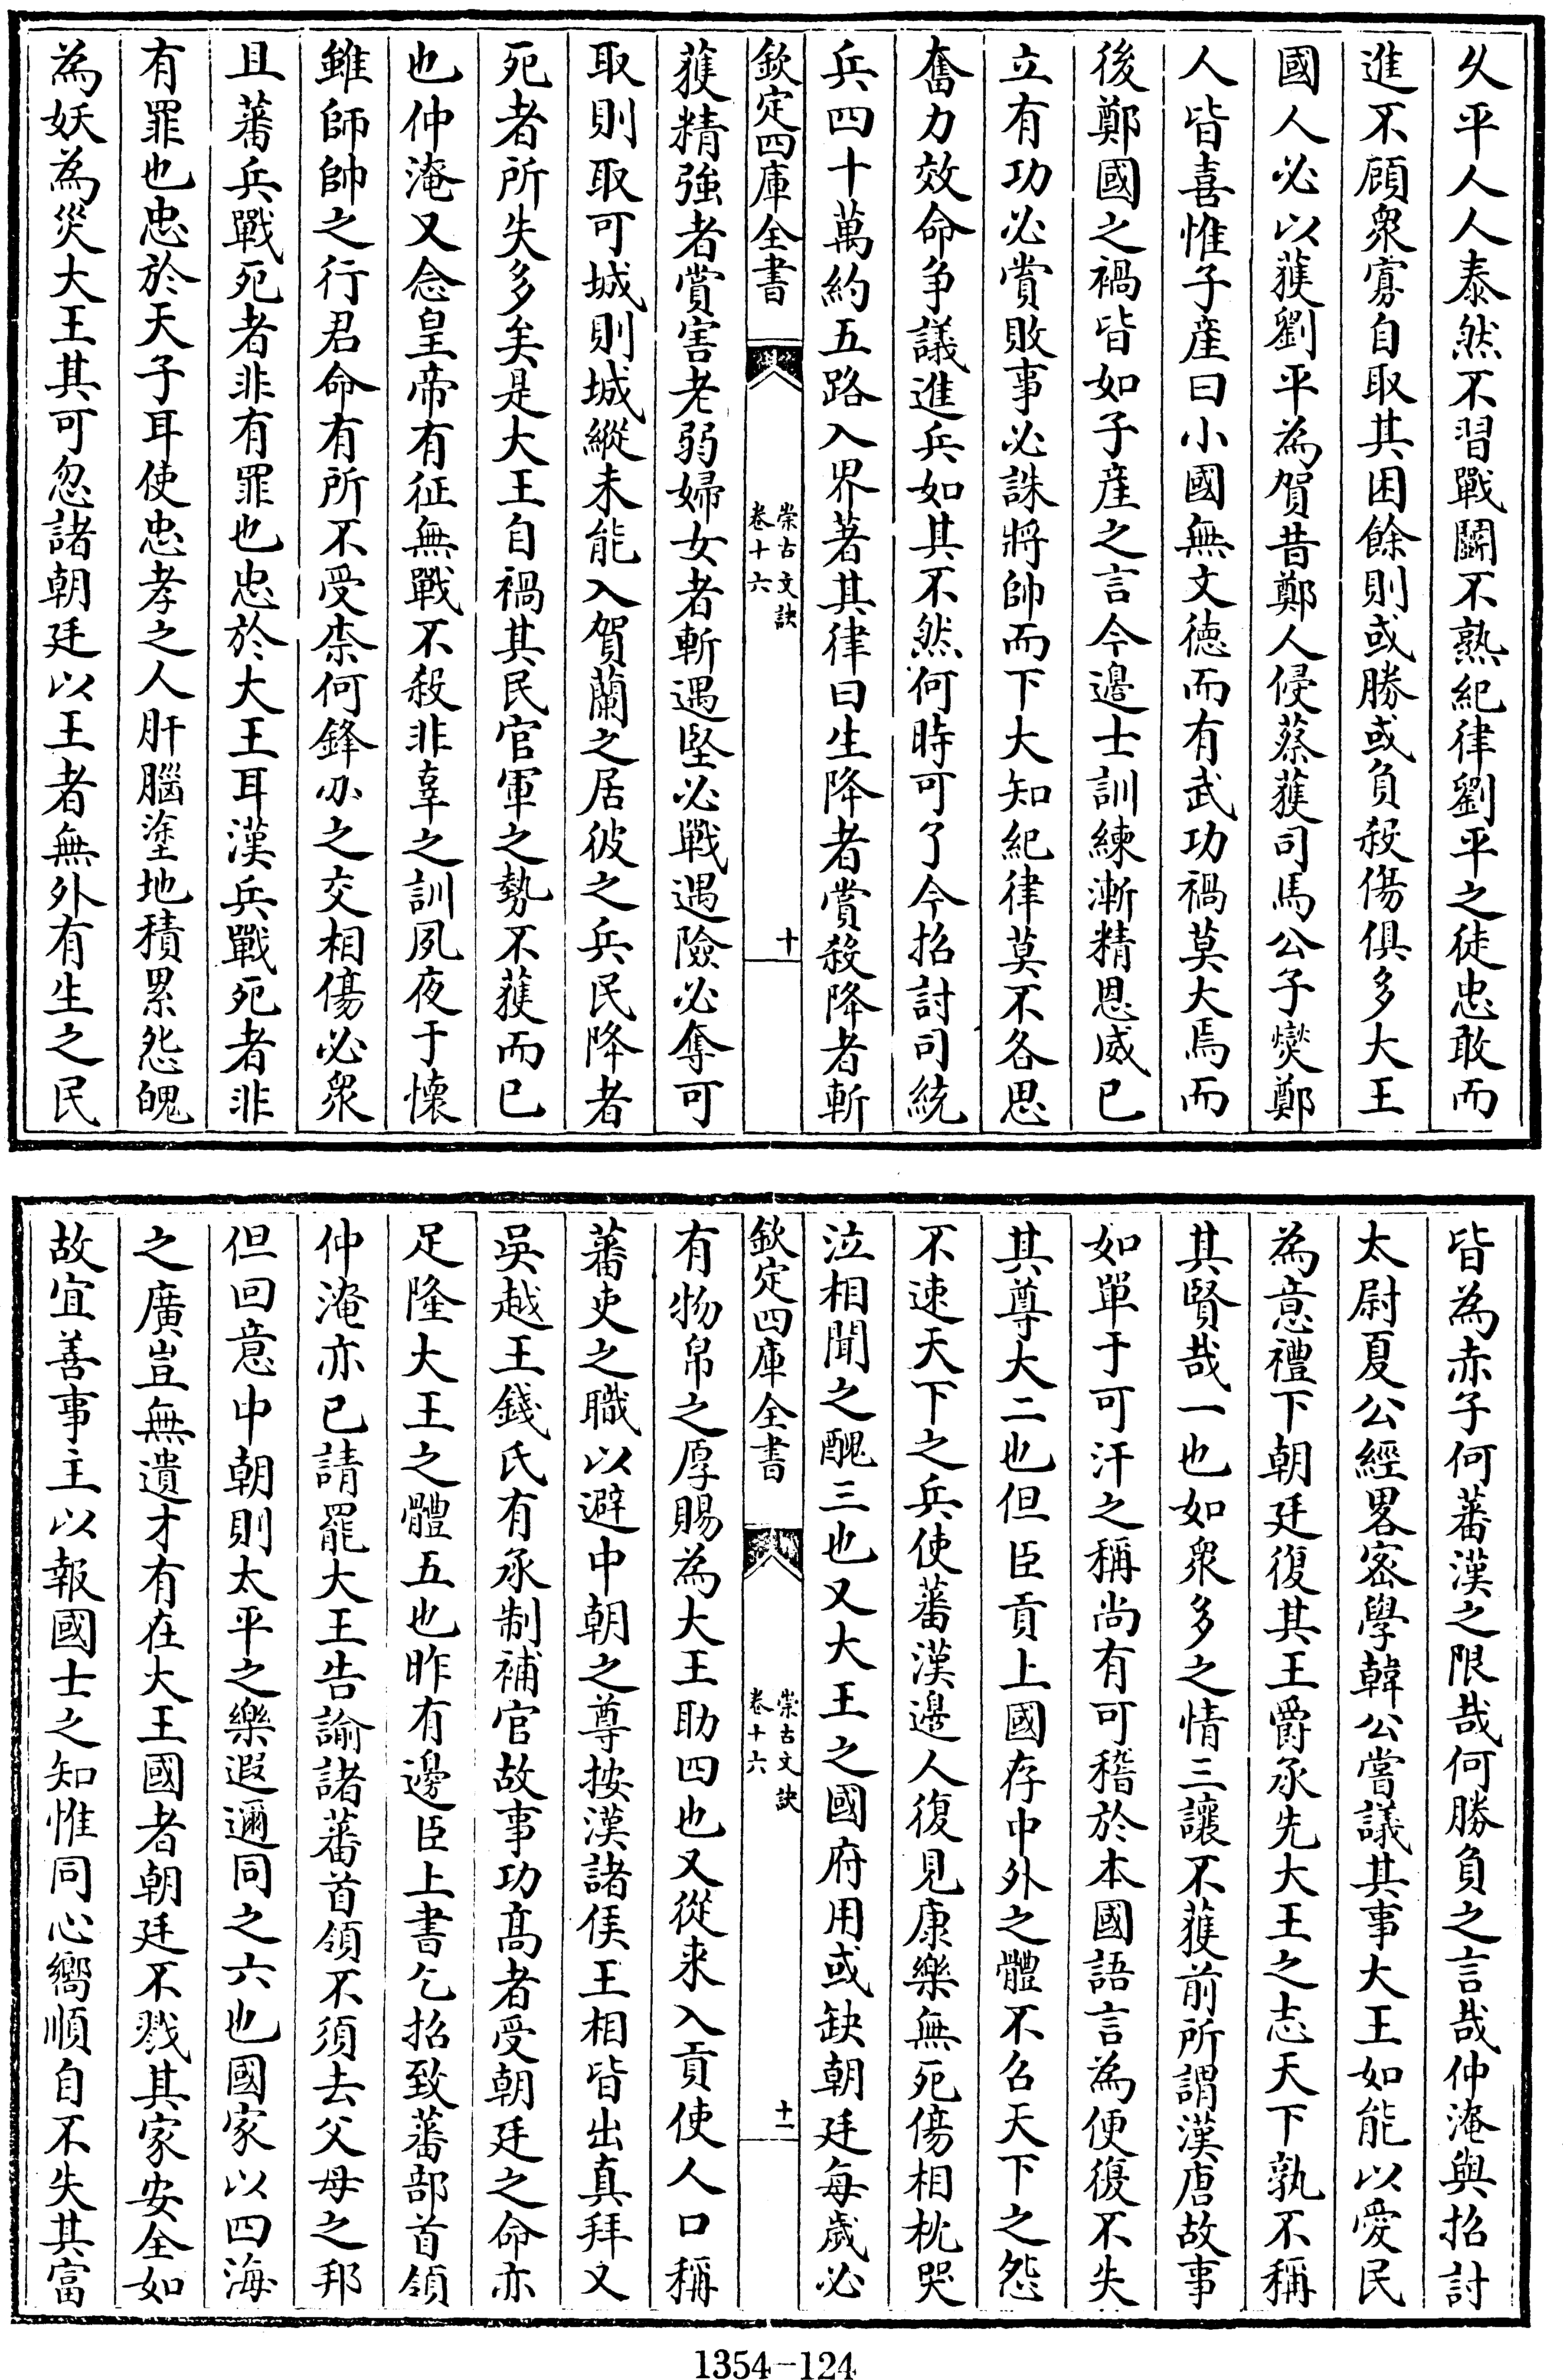 久平人人泰然不習戰鬬不熟紀律劉平之徒忠敢而
進不顧衆寡自取其困餘則或勝或負殺傷俱多大王
國人必以獲劉平為賀昔鄭人侵蔡獲司馬公子燮鄭
人皆喜惟子産曰小國無文徳而有武功禍莫大焉而
後鄭國之禍皆如子産之言今邉士訓練漸精恩威已
立有功必賞敗事必誅將帥而下大知紀律莫不各思
奮力效命争議進兵如其不然何時可了今招討司統
兵四十萬約五路入界著其律曰生降者賞殺降者斬
欽定四庫全書
崇古文訣
卷十六
十
獲精強者賞害老弱婦女者斬遇堅必戰遇險必奪可
取則取可城則城縱未能入賀蘭之居彼之兵民降者
死者所失多矣是大王自禍其民官軍之勢不獲而已
也仲淹又念皇帝有征無戰不殺非辜之訓夙夜于懐
雖師帥之行君命有所不受柰何鋒刃之交相傷必衆
且蕃兵戰死者非有罪也忠於大王耳漢兵戰死者非
有罪也忠於天子耳使忠孝之人肝腦塗地積累怨魄
為妖為災大王其可忽諸朝廷以王者無外有生之民
皆為赤子何蕃漢之限哉何勝負之言哉仲淹與招討
太尉夏公經畧密學韓公嘗議其事大王如能以愛民
為意禮下朝廷復其王爵承先大王之志天下孰不稱
其賢哉一也如衆多之情三讓不獲前所謂漢唐故事
如單于可汗之稱尚有可稽於本國語言為便復不失
其尊大二也但臣貢上國存中外之體不召天下之怨
不速天下之兵使蕃漢邉人復見康樂無死傷相枕哭
泣相聞之醜三也又大王之國府用或缺朝廷每歲必
欽定四庫全書
崇古文訣
卷十六
十一
有物帛之厚賜為大王助四也又從来入貢使人口稱
蕃吏之職以避中朝之尊按漢諸侯王相皆出真拜又
吳越王錢氏有承制補官故事功髙者受朝廷之命亦
足隆大王之體五也昨有邊臣上書乞招致蕃部首領
仲淹亦已請罷大王告諭諸蕃首領不須去父母之邦
但回意中朝則太平之樂遐邇同之六也國家以四海
之廣豈無遺才有在大王國者朝廷不戮其家安全如
故宜善事主以報國士之知惟同心嚮順自不失其富
1354-124